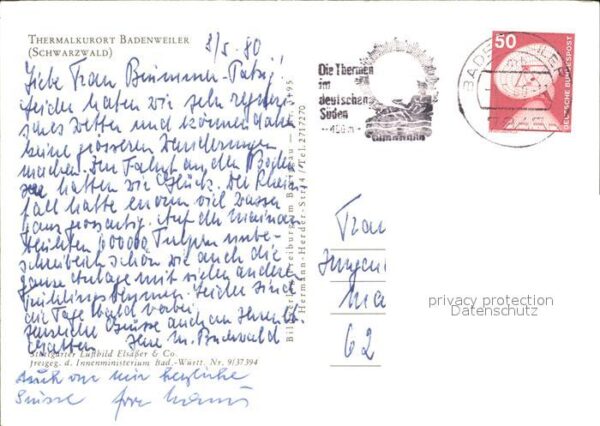 THERMALKURORT BADENWEILER
(SCHWARZWALD)
2/5.80
Liebe Frau
leider haben wir sehr regneri-
sches Wetter und können daher
keine grösseren Wanderungen
machen. Zur Fahrt an den Boden-
see hatten wir Glück. Der Rhein-
fall hatte enorm viel Wasser
ganz grossartig. Auf der Mainau
blühten 600000 Tulpen unbe-
schreiblich schön wie auch die
ganze Anlage mit vielen anderen
Frühlingsblumen. Leider sind
die Tage bald vorbei.
Herzliche Grüsse auch an Ihren lb.
Gatten. Ihre M. Buchwald
Stuttgarter Luftbild Elsäßer & Co.
freigeg. d. Innenministerium Bad.-Württ. Nr. 9/37394
Auch von mir herzliche
Grüsse
Freiburg im Breisgau
Hermann-Herder-Str. 4 / Tel. 2717270
Die Thermen
im
deutschen
Süden
BADENWEILER
50
DEUTSCHE BUNDESPOST
Frau
62
privacy protection
Datenschutz